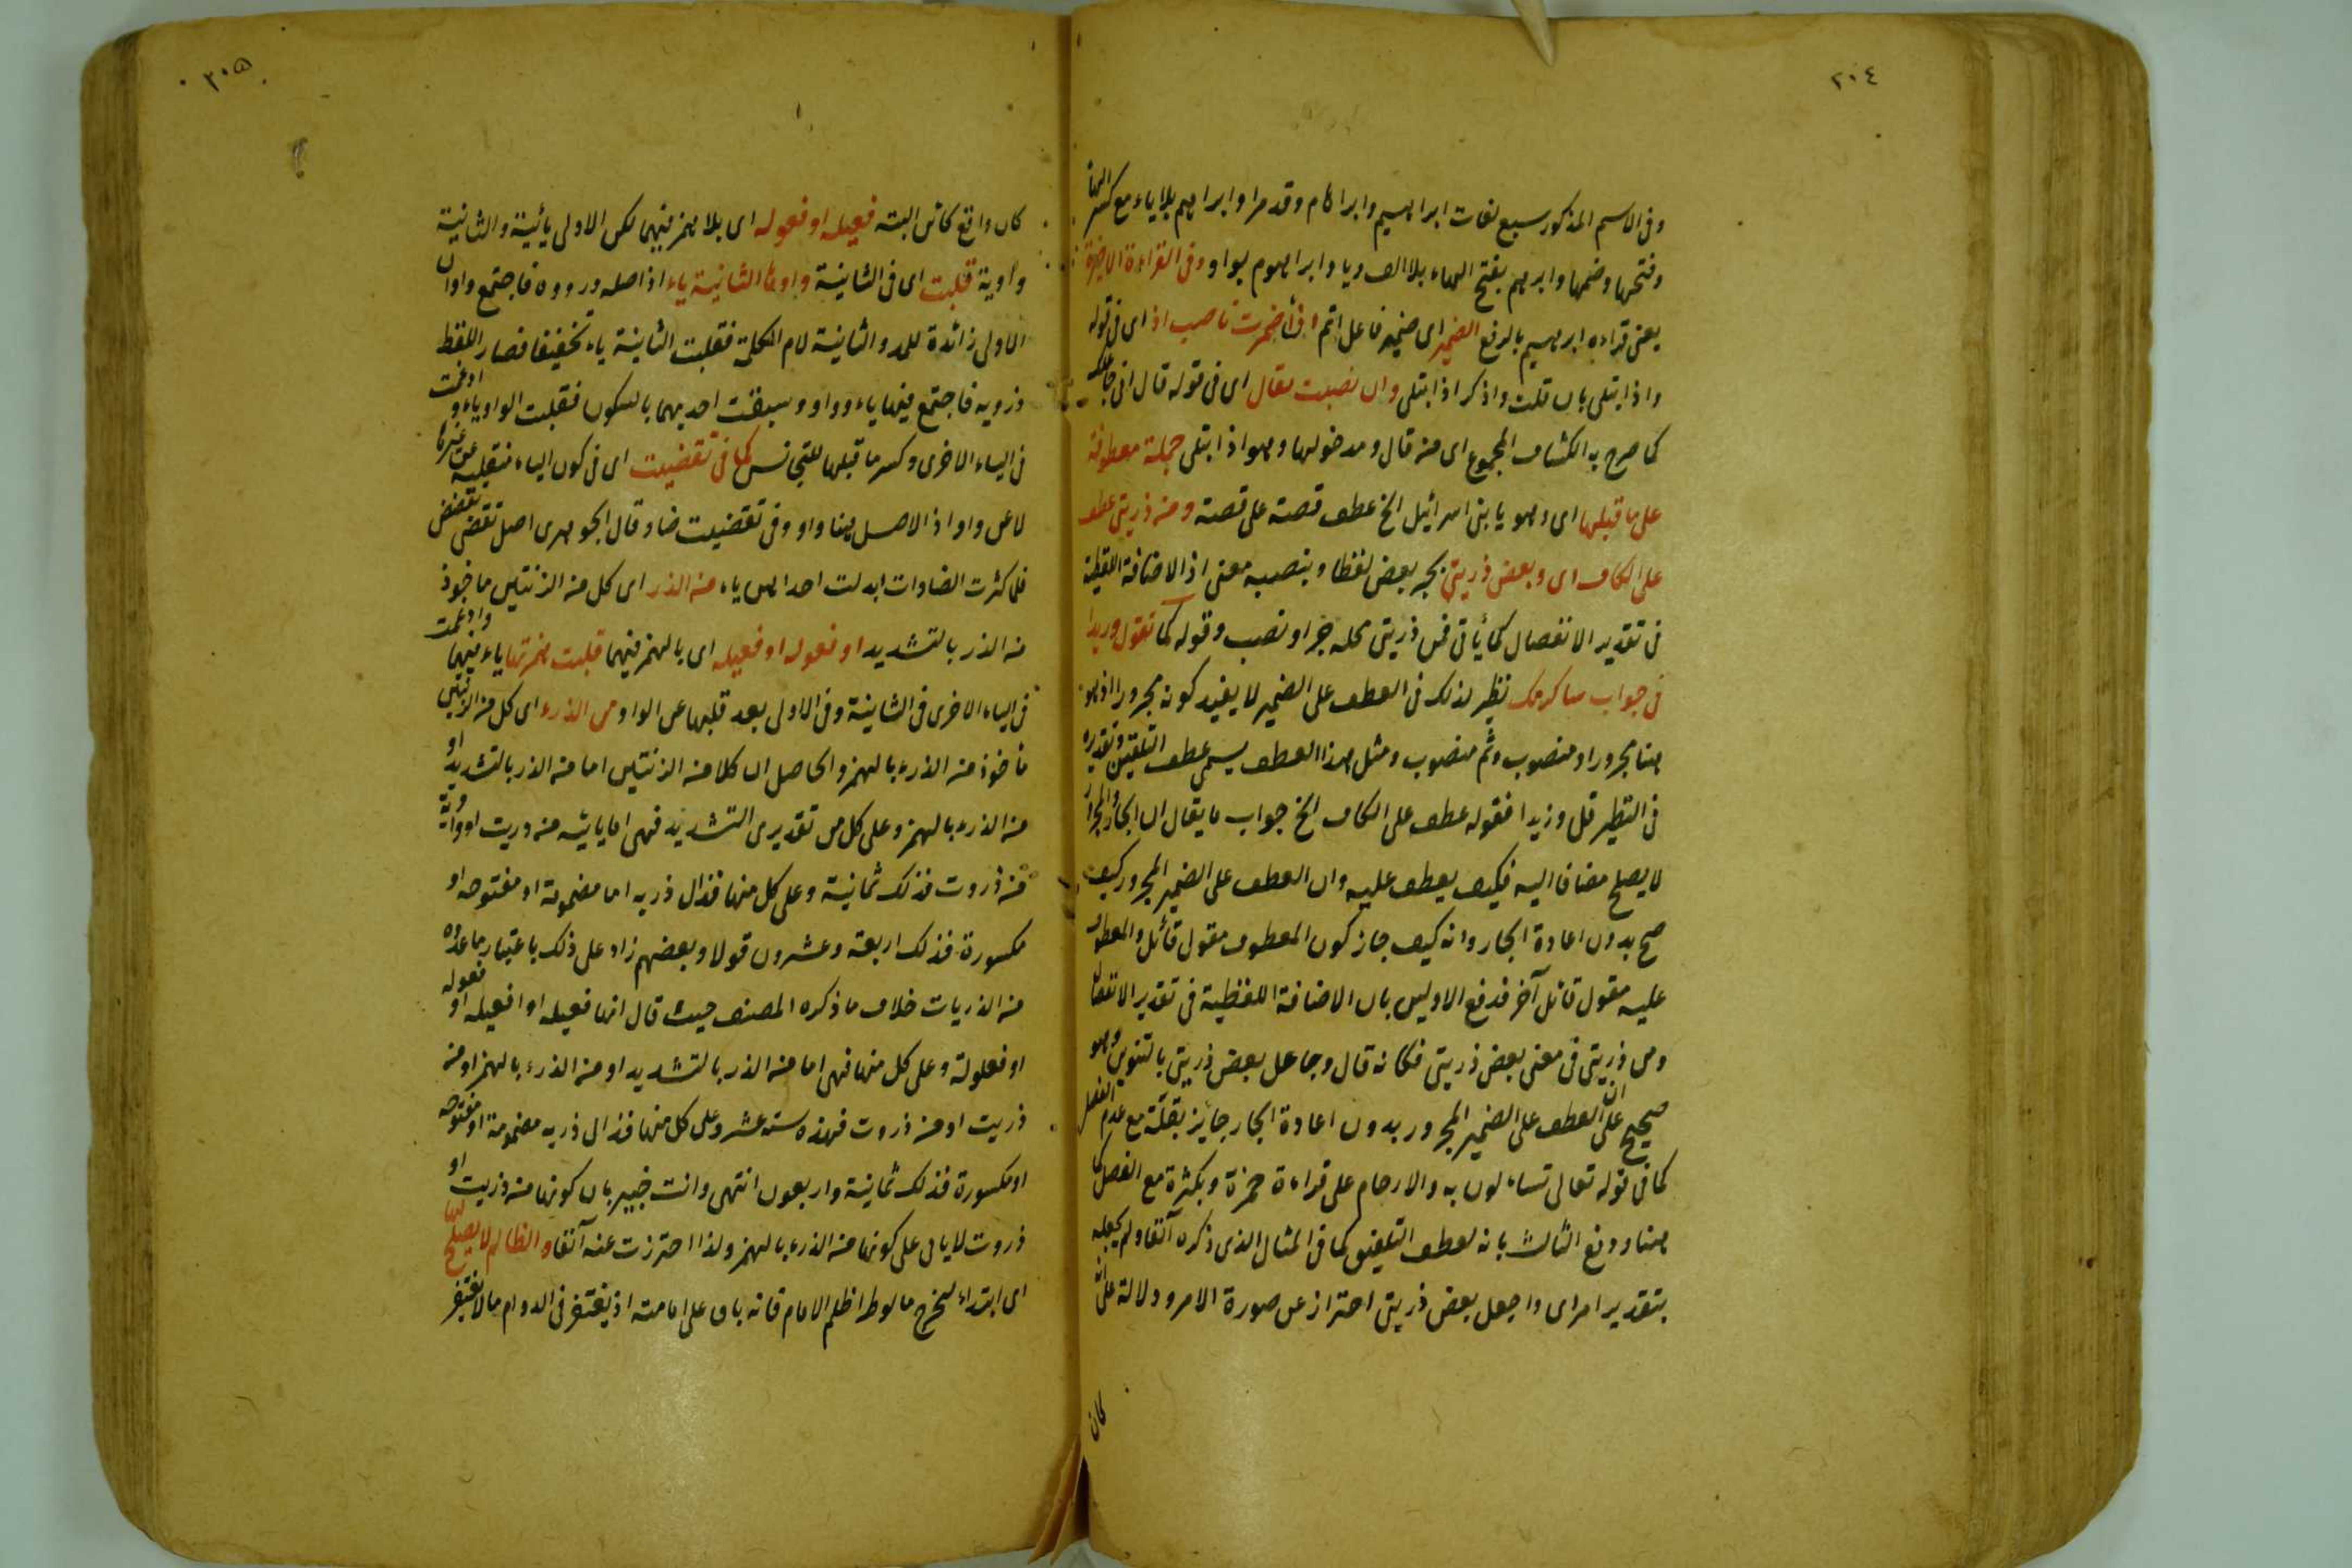 ٢٠٤
وفى الاسم المذكور سبع لغات ابراهيم وابراهام وقد مرا وابراهم بلا ياء مع كسر الهاء
وفتحها وضمها وابرهم بفتح الهاء بلا الف ويا وابراهوم بواو وفى القراءة الاخيرة
يعنى قراءه ابرهيم بالرفع الضمير اى ضمير فاعل اتم اضمرت ناصب اذ اى فى قوله
واذ ابتلى بان قلت واذكر اذ ابتلى وان نصبت بقال اى فى قوله قال انى جاعلك
كما صرح به الكشاف المجموع اى من قال ومدخولها وهو اذ ابتلى جملة معطوفة
على ما قبلها اى وهو يا بنى اسرائيل الخ عطف قصة على قصة ومن ذريتى عطف
على الكاف اى وبعض ذريتى بجر بعض لفظا وبنصبه معنى اذ الاضافة اللفظية
فى تقدير الانفصال كما يأتى فمن ذريتى محله جر او نصب وقوله كما تقول وزيدا
فى جواب ساكرمك نظير لذلك فى العطف على الضمير لا يفيد كونه مجرورا اذ هو
هنا مجرور او منصوب وثم منصوب ومثل هذا العطف يسمى عطف التلقين وتقديره
فى النظير قل وزيدا فقوله عطف على الكاف الخ جواب ما يقال ان الجار والمجرور
لا يصلح مضافا اليه فكيف يعطف عليه وان العطف على الضمير المجرور كيف
صح بدون اعادة الجار وانه كيف جاز كون المعطوف مقول قائل والمعطوف
عليه مقول قائل آخر فدفع الاولين بان الاضافة اللفظية فى تقدير الانفصال
ومن ذريتى فى معنى بعض ذريتى فكانه قال وجاعل بعض ذريتى بالتنوين وهو
صحيح على ان العطف على الضمير المجرور بدون اعادة الجار جايز بقلة مع عدم الفصل
كما فى قوله تعالى تساءلون به والارحام على قراءة حمزة وبكثرة مع الفصل كما
هنا ودفع الثالث بانه لعطف التلقين كما فى المثال الذى ذكره آنفا ولم يجعله
بتقدير امر اى واجعل بعض ذريتى احتراز عن صورة الامر ودلالة على انه
كان
٢٠٥
كان واقع كائن البتة فعيلة او فعولة اى بلا همز فيهما لكن الاولى يائية والثانية
واوية قلبت اى فى الثانية واوها الثانية ياء اذ اصله ذرووة فاجتمع واوان
الاولى زائدة للمد والثانية لام الكلمة فقلبت الثانية ياء تخفيفا فصار اللفظ
ذرويه فاجتمع فيها ياء وواو وسبقت احديهما بالسكون فقلبت الواو ياء وادغمت
فى الياء الاخرى وكسر ما قبلها للتجانس كما فى تقضيت اى فى كون الياء منقلبة عن غيرها
لا عن واو اذ الاصل هنا واو وفى تقضيت ضاد قال الجوهرى اصل تقضى تقضض
فلما كثرت الضادات ابدلت احداهن ياء من الذر اى كل من الزنتين ماخوذ
من الذر بالتشديد او فعولة او فعيلة اى بالهمز فيهما قلبت همزتها ياء فيهما وادغمت
فى الياء الاخرى فى الثانية وفى الاولى بعد قلبها عن الواو من الذرء اى كل من الزنتين
ماخوذ من الذرء بالهمز والحاصل ان كلا من الزنتين اما من الذر بالتشديد او
من الذرء بالهمز وعلى كل من تقديرى التشديد فهى اما يائية من ذريت او واوية
من ذروت فذلك ثمانية وعلى كل منها فذال ذريه اما مضمومة او مفتوحه او
مكسورة فذلك اربعة وعشرون قولا وبعضهم زاد على ذلك باعتبار ما عده
من الذريات خلاف ما ذكره المصنف حيث قال انها فعيلة او افعيلة او فعولة
او فعلولة وعلى كل منها فهى اما من الذر بالتشديد او من الذرء بالهمز او من
ذريت او من ذروت فهذه ستة عشر وعلى كل منها فذال ذريه مضمومة او مفتوحه
او مكسورة فذلك ثمانية واربعون انتهى وانت خبير بان كونها من ذريت او
ذروت لا على كونها من الذرء بالهمز ولذا احترزت عنه آنفا والظالم لا يصلح لها
اى ابتداء ليخرج ما لو ظلم الامام فانه باق على امامته اذ يغتفر فى الدوام ما لا يغتفر